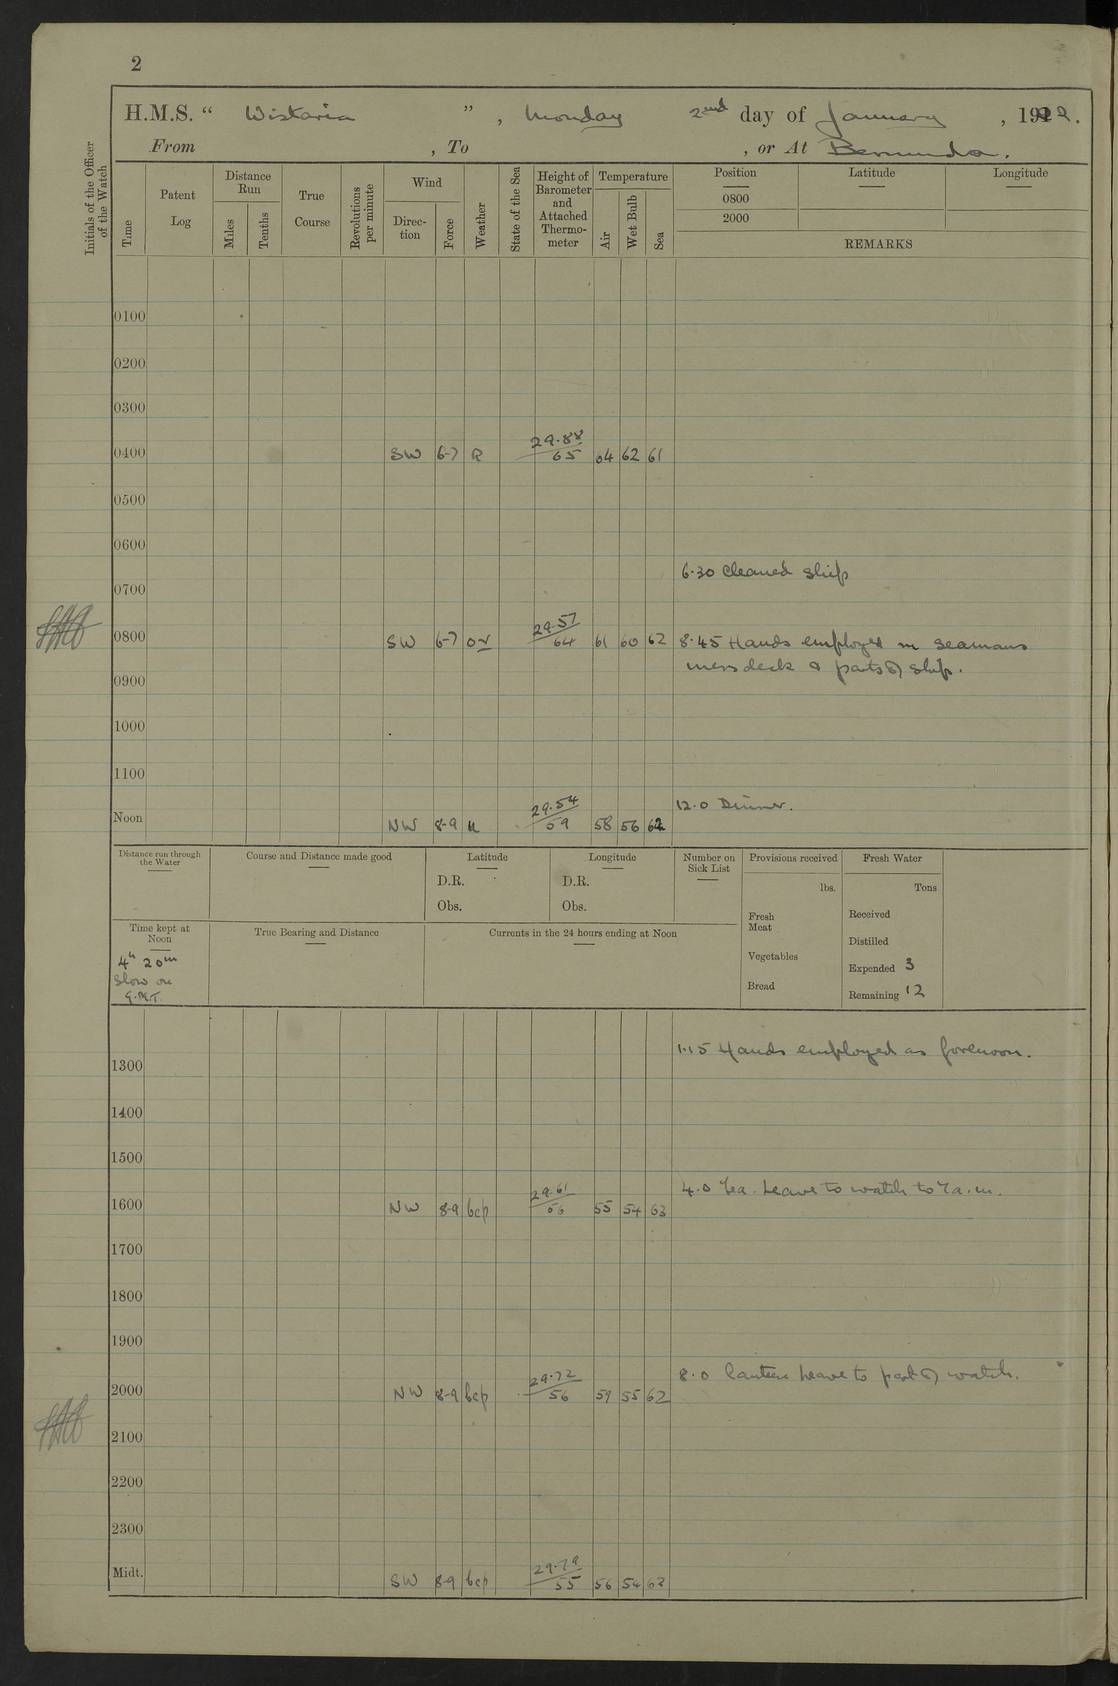 2
H.M.S. “ Wistaria ” , Monday 2nd day of January , 1922.
From , To , or At Bermuda.
Initials of the Officer of the Watch
Time
Patent Log
Distance Run
Miles
Tenths
True Course
Revolutions per minute
Wind
Direc-tion
Force
Weather
State of the Sea
Height of Barometer and Attached Thermo-meter
Temperature
Air
Wet Bulb
Sea
Position Latitude Longitude
0800
2000
REMARKS
0100
0200
0300
0400 SW 6-7 R 29.88 65 64 62 61
0500
0600
6.30 Cleaned ship
0700
0800 SW 6-7 or 29.57 64 61 60 62 8.45 Hands employed in seamans
mess deck & parts of ship.
0900
1000
1100
12.0 Dinner.
Noon NW 8-9 29.54 59 58 56 62
Distance run through the Water
Course and Distance made good
Latitude
D.R.
Obs.
Longitude
D.R.
Obs.
Number on Sick List
Provisions received
lbs.
Fresh Meat
Vegetables
Bread
Fresh Water
Tons
Received
Distilled
Expended 3
Remaining 12
Time kept at Noon
4h 20m
Slow on
G.M.T.
True Bearing and Distance
Currents in the 24 hours ending at Noon
1.15 Hands employed as forenoon.
1300
1400
1500
4.0 Tea. Leave to watch to 7 a.m.
1600 NW 8-9 bcp 29.61 56 55 54 63
1700
1800
1900
8.0 Canteen leave to part of watch.
2000 NW 8-9 bcp 29.72 56 59 55 62
2100
2200
2300
Midt. SW 8-9 bcp 29.79 55 56 54 62